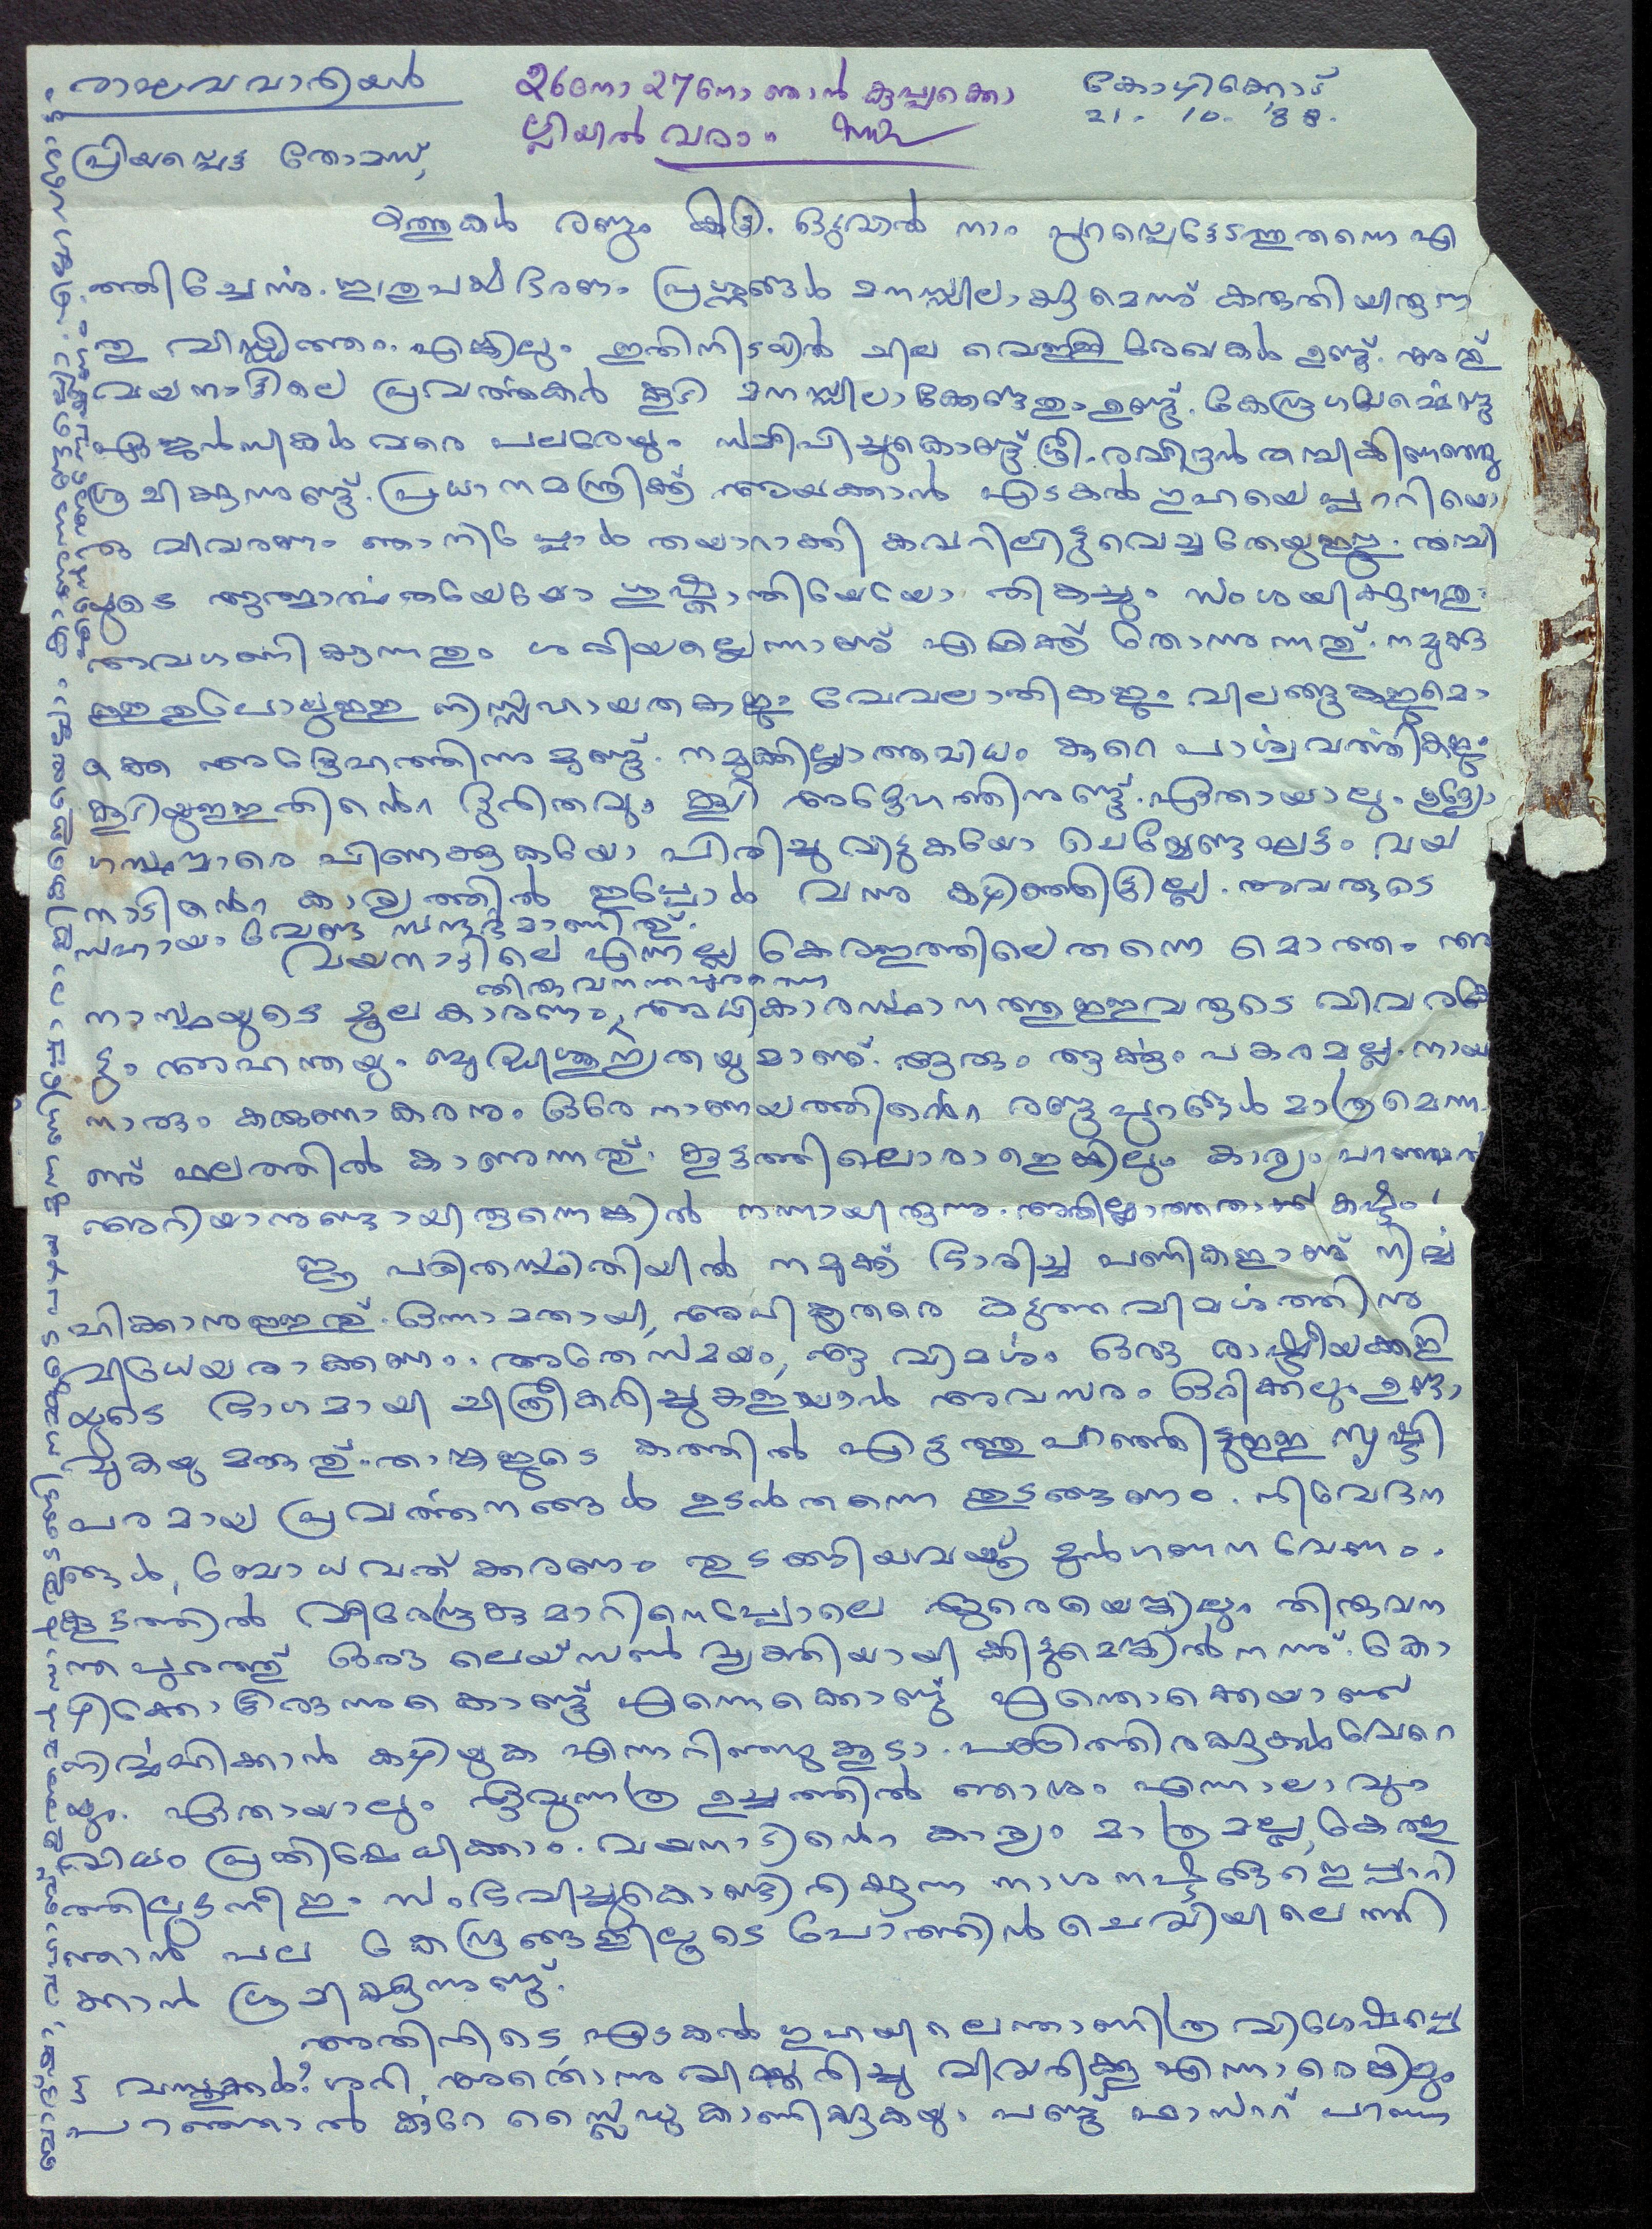 രാഘവവാരിയർ
26നോ 27നോ ഞാൻ കുപ്പക്കൊ
ല്ലിയിൽ വരാം
കോഴിക്കോട്
21. 10. '88.
പ്രിയപ്പെട്ട തോമസ്,
കത്തുകൾ രണ്ടും കിട്ടി. ഒടുവാൽ നാം പുറപ്പെട്ടേടത്തുതന്നെ എ
ത്തിച്ചേർന്നു. ഭരണം പ്രശ്നങ്ങൾ മനസ്സിലാക്കുമെന്ന് കരുതിയിരുന്ന
തു വിഡ്ഢിത്തം. എങ്കിലും ഇതിനിടയിൽ ചില വെള്ളിരേഖകൾ ഉണ്ട്. അത്
വയനാട്ടിലെ പ്രവർത്തകർ കൂടി മനസ്സിലാക്കേണ്ടതുണ്ട്. കേന്ദ്രഗവർമ്മെണ്ടു
ഏജൻസികൾ വരെ പലരേയും സമീപിച്ചുകൊണ്ട് ശ്രീ. രവീന്ദ്രൻ തമ്പി കിണഞ്ഞു
ശ്രമിക്കുന്നുണ്ട്. പ്രധാനമന്ത്രിക്ക് അയക്കാൻ എടക്കൽ ഗുഹയെപ്പററിയൊ
രു വിവരണം ഞാനിപ്പോൾ തയാറാക്കി കവറിലിട്ടുവെച്ചതേയുള്ളൂ. തമ്പി
യുടെ ആത്മാർത്ഥതയേയോ ശുഷ്ക്കാന്തിയേയോ തികച്ചും സംശയിക്കുന്നതും
അവഗണിക്കുന്നതും ശരിയല്ലെന്നാണ് എനിക്ക് തോന്നുന്നത്. നമുക്കു
ള്ളതുപോലുള്ള നിസ്സഹായതകളും വേവലാതികളും വിലങ്ങുകളുമൊ
ക്കെ അദ്ദേഹത്തിന്നുമുണ്ട്. നമുക്കില്ലാത്തവിധം കുറെ പാർശ്വവർത്തികളും
കൂടിയുള്ളതിൻെറ ദുരിതവും കൂടി അദ്ദേഹത്തിനുണ്ട്. ഏതായാലും ഉദ്യോ
ഗസ്ഥന്മാരെ പിണക്കുകയോ പിരിച്ചുവിടുകയോ ചെയ്യേണ്ട ഘട്ടം വയ
നാടിൻെറ കാര്യത്തിൽ ഇപ്പോൾ വന്നു കഴിഞ്ഞിട്ടില്ല. അവരുടെ
സഹായം വേണ്ട സന്ദർഭമാണിത്.
വയനാട്ടിലെ എന്നല്ല കേരളത്തിലെതന്നെ മൊത്തം അ
തിരുവനന്തപുരത്തെ
നാസ്ഥയുടെ മൂലകാരണം, അധികാരസ്ഥാനത്തുള്ളവരുടെ വിവരക്കേ
ടും അഹന്തയും ബുദ്ധിശൂന്യതയുമാണ്. ആരും ആർക്കും പകരമല്ല. നായ
നാരും കരുണാകരനും ഒരേ നാണയത്തിൻെറ രണ്ടുപുറങ്ങൾ മാത്രമെന്ന
ണ് ഫലത്തിൽ കാണുന്നത്. കൂട്ടത്തിലൊരാളെങ്കിലും കാര്യം പറഞ്ഞാൽ
അറിയാനുണ്ടായിരുന്നെങ്കിൽ നന്നായിരുന്നു. അതില്ലാത്തതാണ് കഷ്ടം!
ഈ പരിതസ്ഥിതിയിൽ നമുക്ക് ഭാരിച്ച പണികളാണ് നിർവ്വ
ഹിക്കാനുള്ളത്. ഒന്നാമതായി, അധികൃതരെ കടുത്ത വിമർശത്തിനു
വിധേയരാക്കണം. അതേസമയം, ഈ വിമർശം ഒരു രാഷ്ട്രീയക്കളി
യുടെ ഭാഗമായി ചിത്രീകരിച്ചുകളയാൻ അവസരം ഒരിക്കലും ഉണ്ടാ
വുകയുമരുത്. താങ്കളുടെ കത്തിൽ എടുത്തുപറഞ്ഞിട്ടുള്ള സൃഷ്ടി
പരമായ പ്രവർത്തനങ്ങൾ ഉടൻതന്നെ തുടങ്ങണം. നിവേദന
ങ്ങൾ, ബോധവത്ക്കരണം തുടങ്ങിയവയ്ക്ക് മുൻഗണന വേണം.
കൂട്ടത്തിൽ വീരേന്ദ്രകുമാറിനെപ്പോലെ ആരെയെങ്കിലും തിരുവന
ന്തപുരത്ത് ഒരു ലെയ്സൺ വ്യക്തിയായി കിട്ടുമെങ്കിൽ നന്ന്. കോ
ഴിക്കോട്ടിരുന്നുകൊണ്ട് എന്നെക്കൊണ്ട് എന്തൊക്കെയാണ്
നിർവ്വഹിക്കാൻ കഴിയുക എന്നറിഞ്ഞുകൂടാ. പണിത്തിരക്കുകൾ വേറെ
യും. ഏതായാലും ആവുന്നത്ര ഉച്ചത്തിൽ ഞാനും എന്നാലാവും
വിധം പ്രതിഷേധിക്കാം. വയനാടിൻെറ കാര്യം മാത്രമല്ല, കേരള
ത്തിലുടനീളം സംഭവിച്ചുകൊണ്ടിരിക്കുന്ന നാശനഷ്ടങ്ങളെപ്പററി
ഞാൻ പല കേന്ദ്രങ്ങളിലൂടെ പോത്തിൻചെവിയിലെത്തി
ക്കാൻ ശ്രമിക്കുന്നുണ്ട്.
അതിനിടെ, എടക്കൽ ഗുഹയിലെന്താണിത്ര വിശേഷപ്പെ
ട്ട വസ്തുക്കൾ? ശരി, അതൊന്നു വിസ്തരിച്ചു വിവരിക്കൂ എന്നാരെങ്കിലും
പറഞ്ഞാൽ കുറേ സ്ലൈഡു കാണിക്കുകയും പണ്ട് ഫാസററ് പറഞ്ഞ